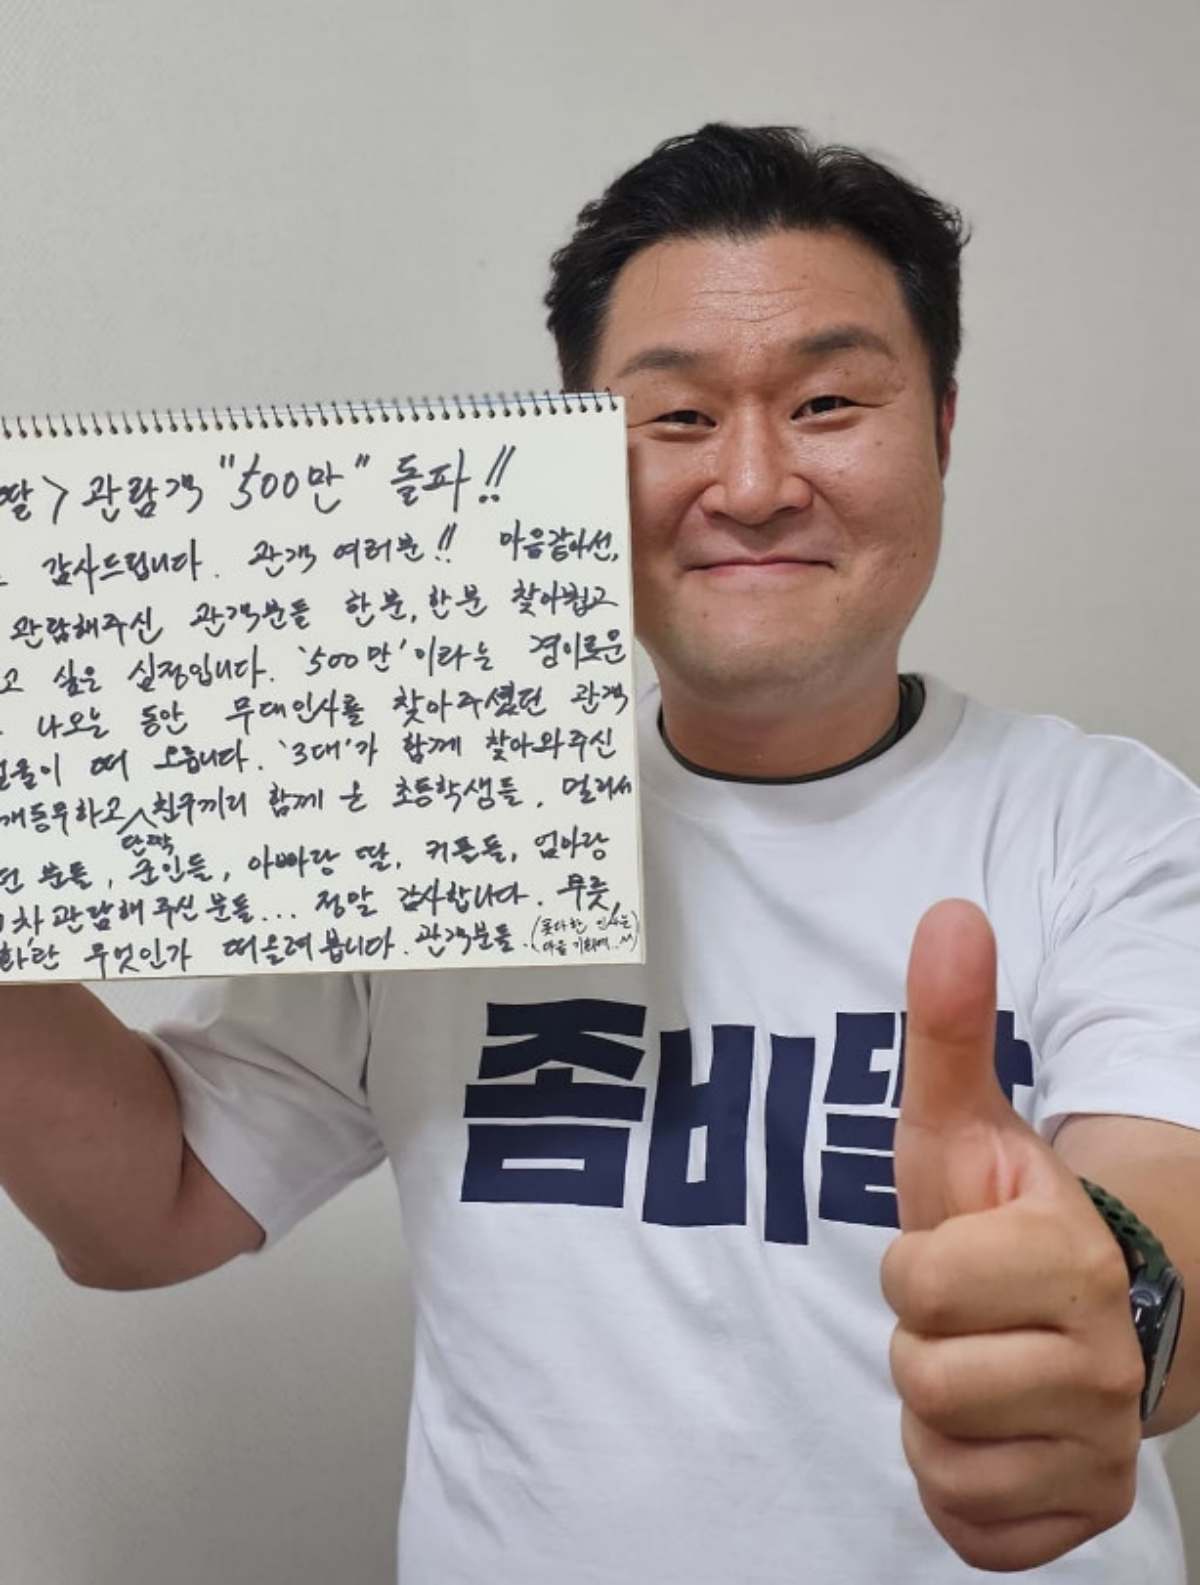 딸> 관람객 "500만" 돌파!!
감사드립니다. 관객 여러분!! 마음같아선,
관람해주신 관객분들 한분, 한분 찾아뵙고
고 싶은 심정입니다. '500만'이라는 경이로운
나오는 동안 무대인사를 찾아주셨던 관객
얼굴이 떠 오릅니다. '3대'가 함께 찾아와주신
깨동무하고 친구끼리 함께 온 초등학생들, 멀리서
단짝
분들, 군인들, 아빠랑 딸, 커플들, 엄마랑
차 관람해 주신 분들... 정말 감사합니다. 무릇,
화란 무엇인가 떠올려 봅니다. 관객분들.
(못다한 인사는
다음 기회에..^^)
좀비딸